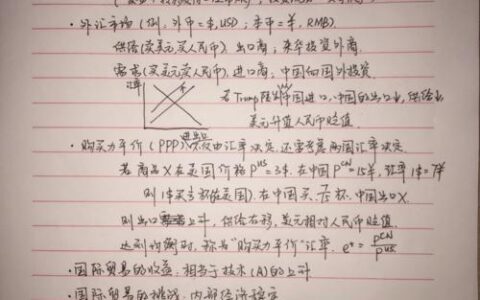 · 外汇市场 (例, 外币=$, USD; 本币=¥, RMB).
供给(卖美元买人民币). 出口商; 来华投资外商.
需求(买美元卖人民币). 进口商; 中国向国外投资.
汇率
若Trump 中国进口, 中国的出口 , 供给
美元升值人民币贬值.
· 购买力平价 (PPP) 进出口 由汇率决定, 还需考虑两国汇率决定.
若商品X在美国价格 P^US=3$. 在中国 P^CN=15¥, 汇率 1$=7¥
则 1 美国), 在中国买 7/5 杯. 中国出口X.
则出口 上升, 供给右移, 美元相对人民币贬值.
达到均衡时, 称为"购买力平价"汇率. e* = P^CN/P^US
· 国际贸易的收益: 相当于技术(A)的上升
· 国际贸易的挑战: 内部经济稳定